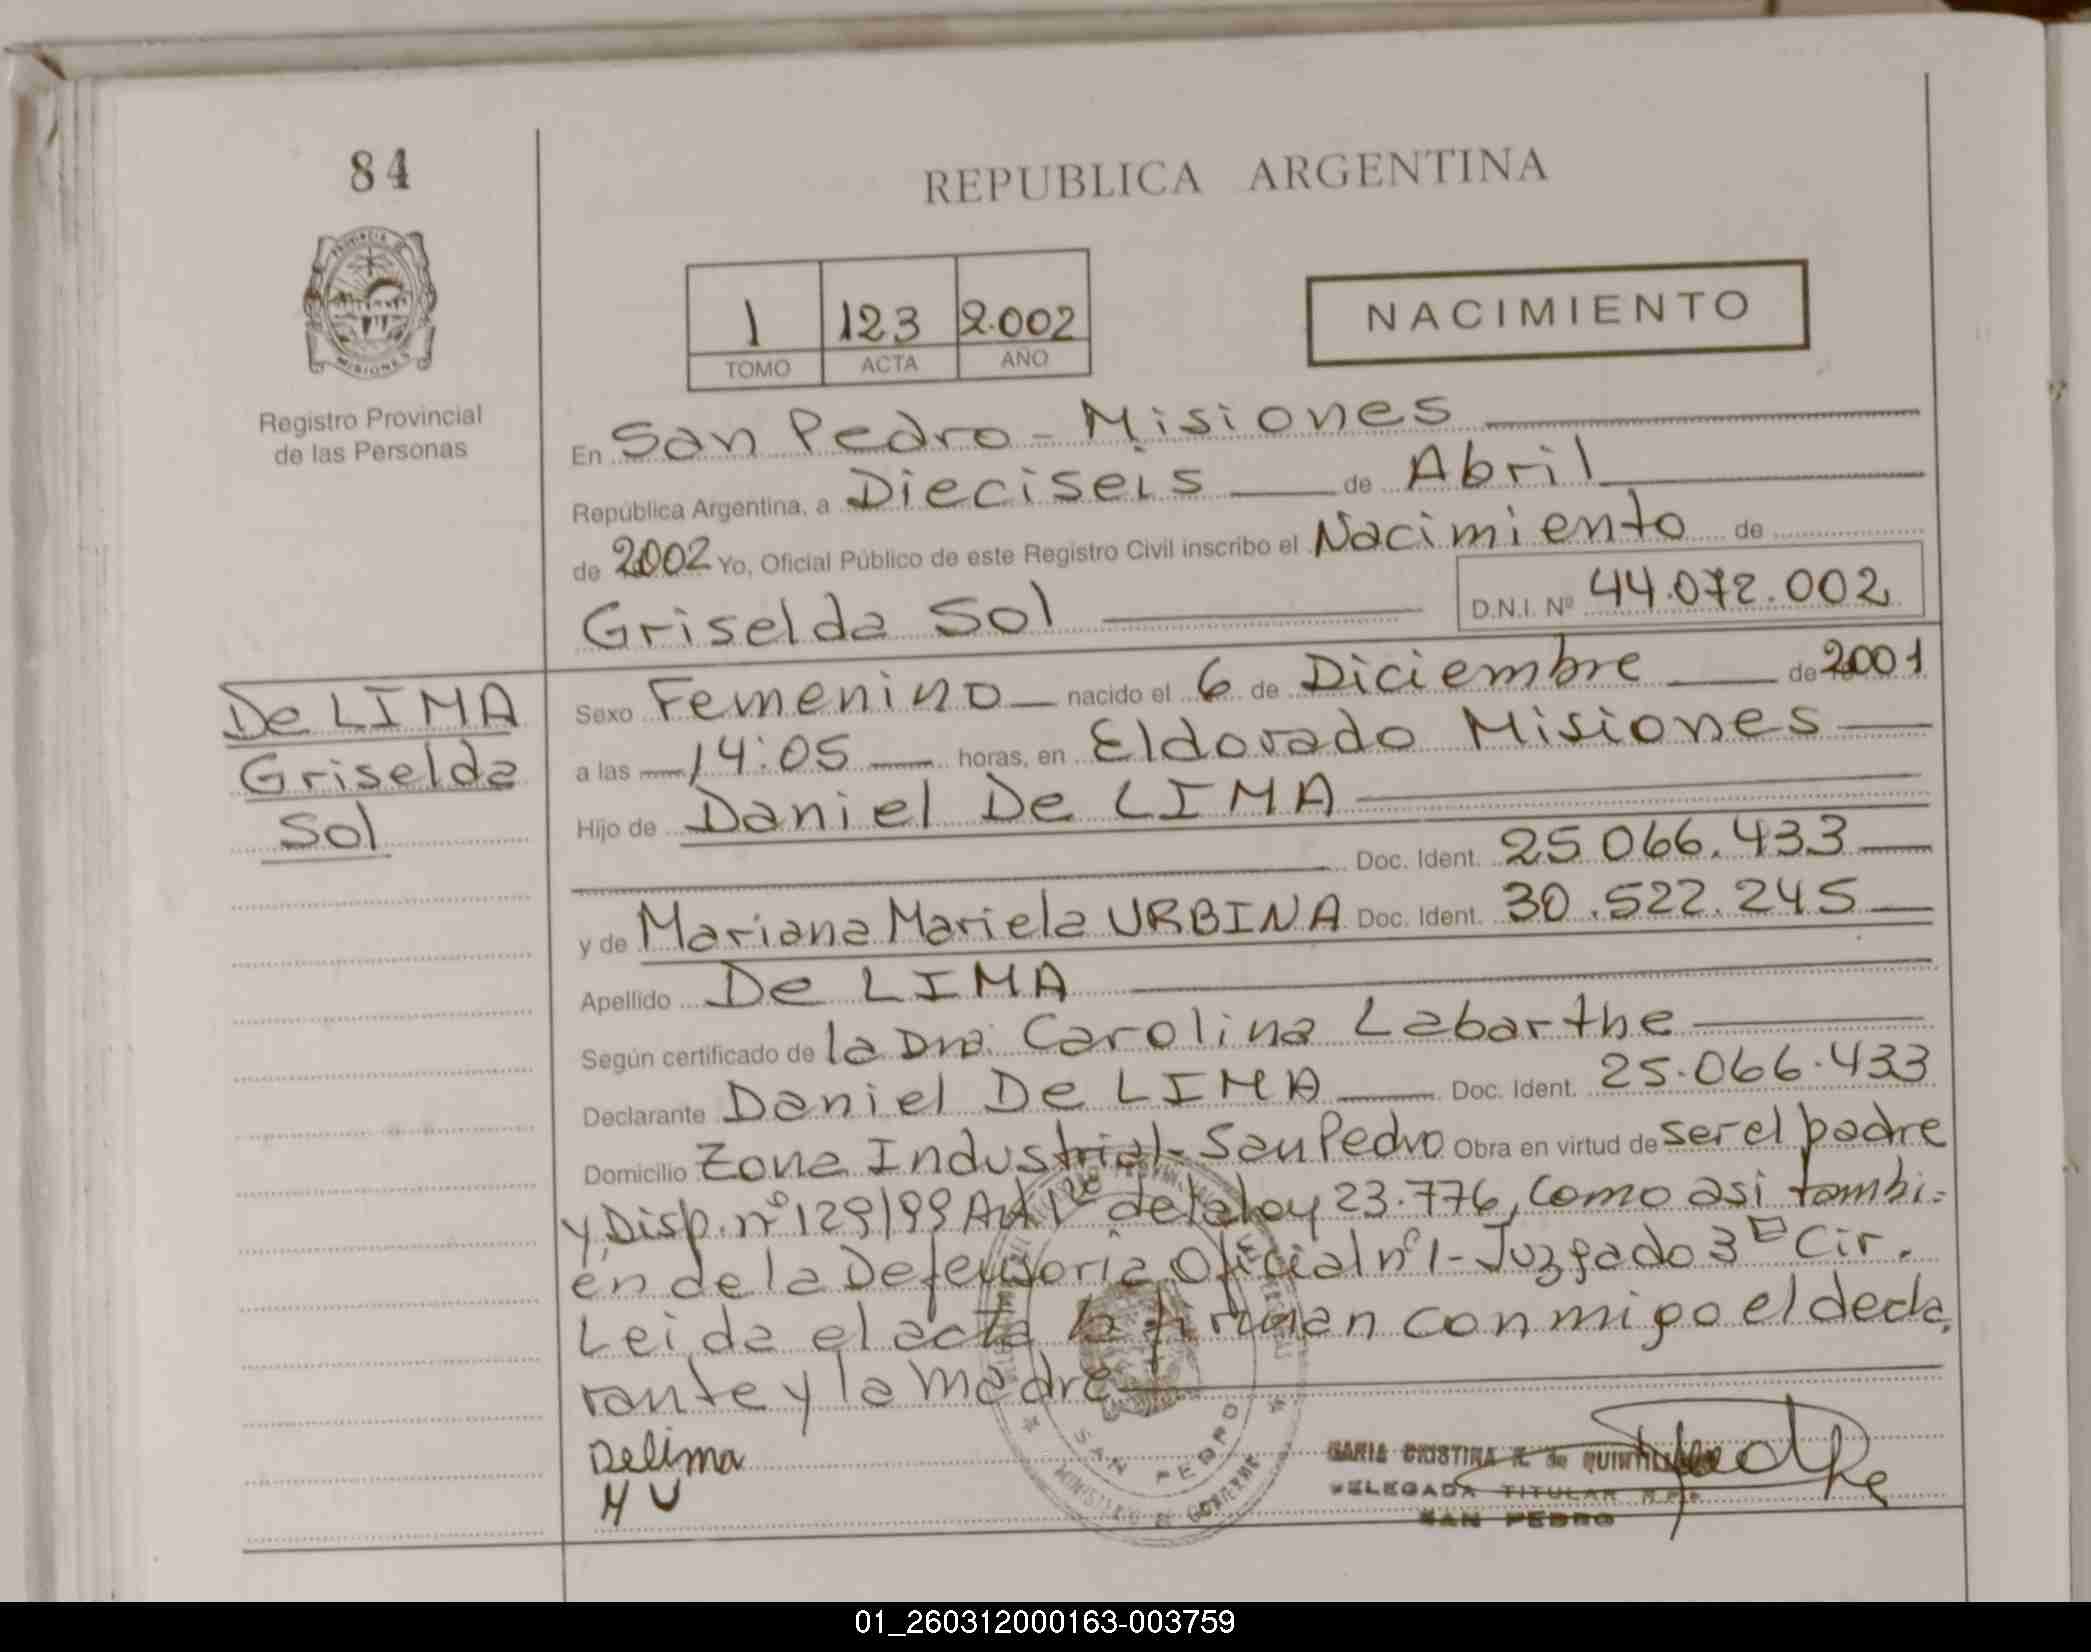 84
REPUBLICA ARGENTINA
PROVINCIA DE
MISIONES
Registro Provincial
de las Personas
1 123 2.002
TOMO ACTA AÑO
NACIMIENTO
En San Pedro - Misiones
República Argentina, a Dieciseis de Abril
de 2002 Yo, Oficial Público de este Registro Civil inscribo el Nacimiento de
Griselda Sol D.N.I. Nº 44.072.002
De LIMA
Griselda
Sol
Sexo Femenino nacido el 6 de Diciembre de 2001
a las 14:05 horas, en Eldorado Misiones
Hijo de Daniel De LIMA
Doc. Ident. 25 066.433
y de Mariana Mariela URBINA Doc. Ident. 30.522.245
Apellido De LIMA
Según certificado de la Dra. Carolina Labarthe
Declarante Daniel De LIMA Doc. Ident. 25.066.433
Domicilio Zona Industrial - San Pedro Obra en virtud de ser el padre
y Disp. nº 129/99 Art 1º de la ley 23.776, como asi tambi=
én de la Defensoria Oficial nº 1 - Juzgado 3ª Cir.
Leida el acta la firman conmigo el decla.
rante y la madre
Delima
M U
SAN PEDRO
MINISTERIO DE GOBIERNO
MARIA CRISTINA R. de
DELEGADA TITULAR R.P.P.
SAN PEDRO
01_260312000163-003759